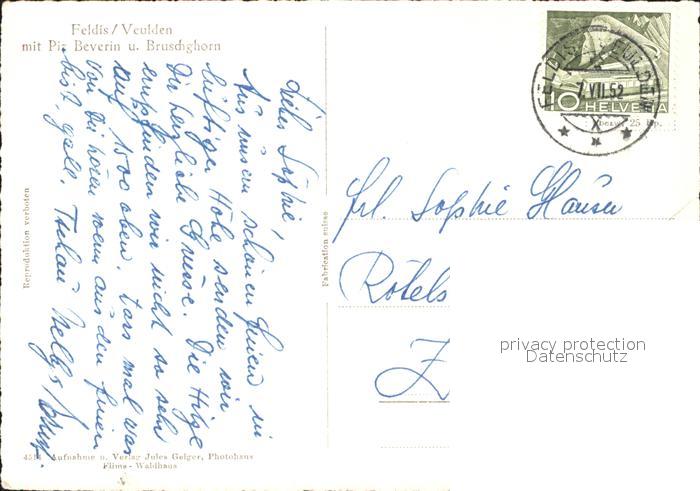 Feldis/Veulden
mit Piz Beverin u. Bruschghorn
Liebe Sophie!
Aus unsern schönen Ferien in
luftiger Höhe senden wir
Dir herzliche Grüsse. Die Hitze
empfinden wir nicht so sehr
auf 1500 oben. Lass mal was
von Dir hören wenn aus den Ferien
bist, gell. Tschau Nellys
Reproduktion verboten
Fabrication suisse
4514 Aufnahme u. Verlag Jules Geiger, Photohaus
Flims - Waldhaus
7.VII.52
10 HELVETIA
Frl. Sophie Hauser
Rötels
Z
privacy protection
Datenschutz